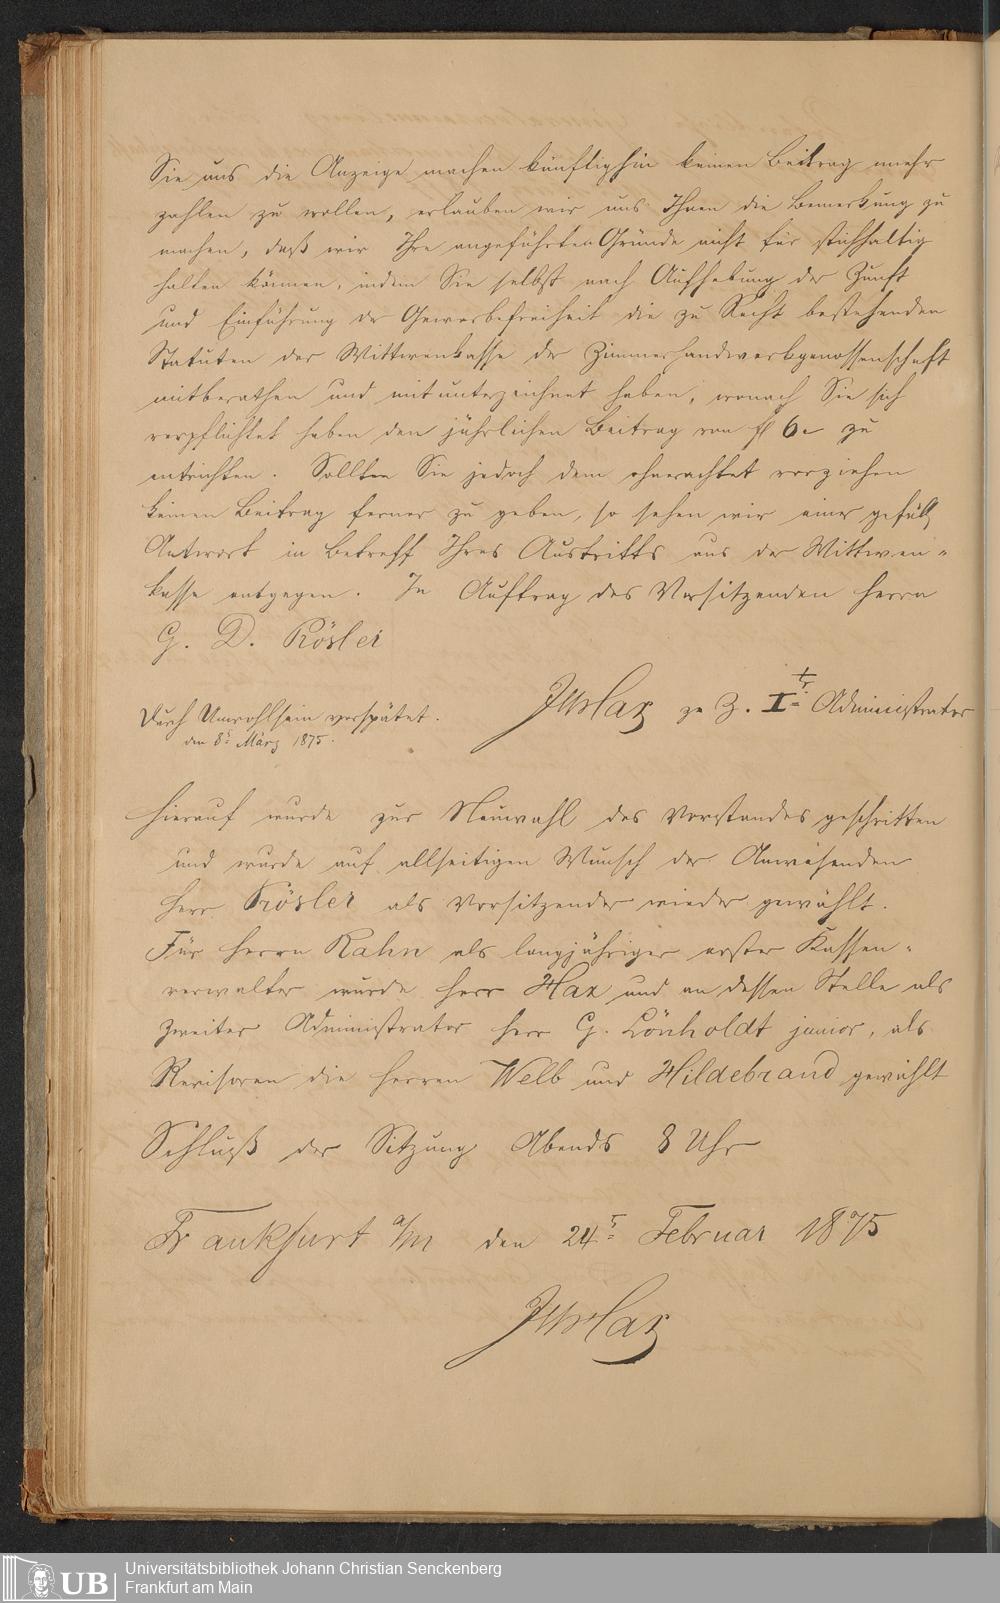 Sie uns die Anzeige machen künftighin keinen Beitrag mehr
zahlen zu wollen, erlauben wir uns Ihnen die Bemerkung zu
machen, daß wir Ihre angeführten Gründe nicht für stichhaltig
halten können, indem Sie selbst nach Aufhebung der Zunft
und Einführung der Gewerbefreiheit die zu Recht bestehenden
Statuten der Wittwenkasse der Zimmerhandwerkgenossenschaft
mitberathen und mitunterzeichnet haben, wonach Sie sich
verpflichtet haben den jährlichen Beitrag von fl 6.– zu
entrichten. Sollten Sie jedoch dem ohnerachtet vorziehen
keinen Beitrag ferner zu geben, so sehen wir einer gefäll.
Antwort in Betreff Ihres Austritts aus der Wittwen-
kasse entgegen. In Auftrag des Vorsitzenden Herrn
G. D. Rösler
JMHax z. Z. Iter Administrator
Durch Unwohlsein verspätet.
den 8t März 1875.
Hierauf wurde zur Neuwahl des Vorstandes geschritten
und wurde auf allseitigen Wunsch der Anwesenden
Herr Rösler als Vorsitzender wieder gewählt.
Für Herrn Rahn als langjähriger erster Kassen-
verwalter wurde Herr Hax und an dessen Stelle als
zweiter Administrator Herr G. Lönholdt junior, als
Revisoren die Herren Welb und Hildebrand gewählt
Schluß der Sitzung Abends 8 Uhr
Frankfurt a/M den 24t Februar 1875
JMHax
Universitätsbibliothek Johann Christian Senckenberg
Frankfurt am Main
UB